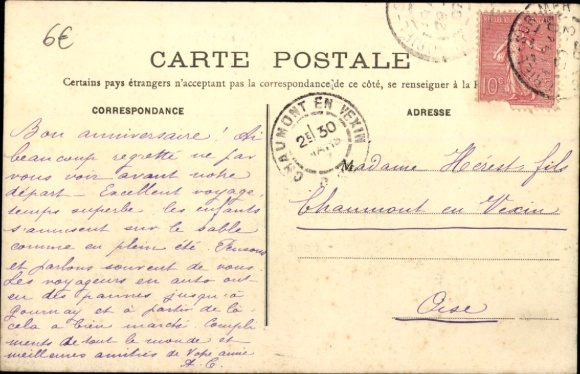 6€
CARTE POSTALE
Certains pays étrangers n'acceptant pas la correspondance de ce côté, se renseigner à la
CORRESPONDANCE
ADRESSE
Bon anniversaire ! Ai
beaucoup regretté ne pas
vous voir avant notre
départ - Excellent voyage,
temps superbe, les enfants
s'amusent sur le sable
comme en plein été. Pensons
et parlons souvent de vous.
Les voyageurs en auto ont
eu des pannes jusqu'à
Gournay et à partir de là
cela a bien marché. Compli
ments de tout le monde et
meilleures amitiés de votre amie
A.C.
CHAUMONT EN VEXIN
2E 30
MARS
10
Madame Herest fils
Chaumont en Vexin
Oise